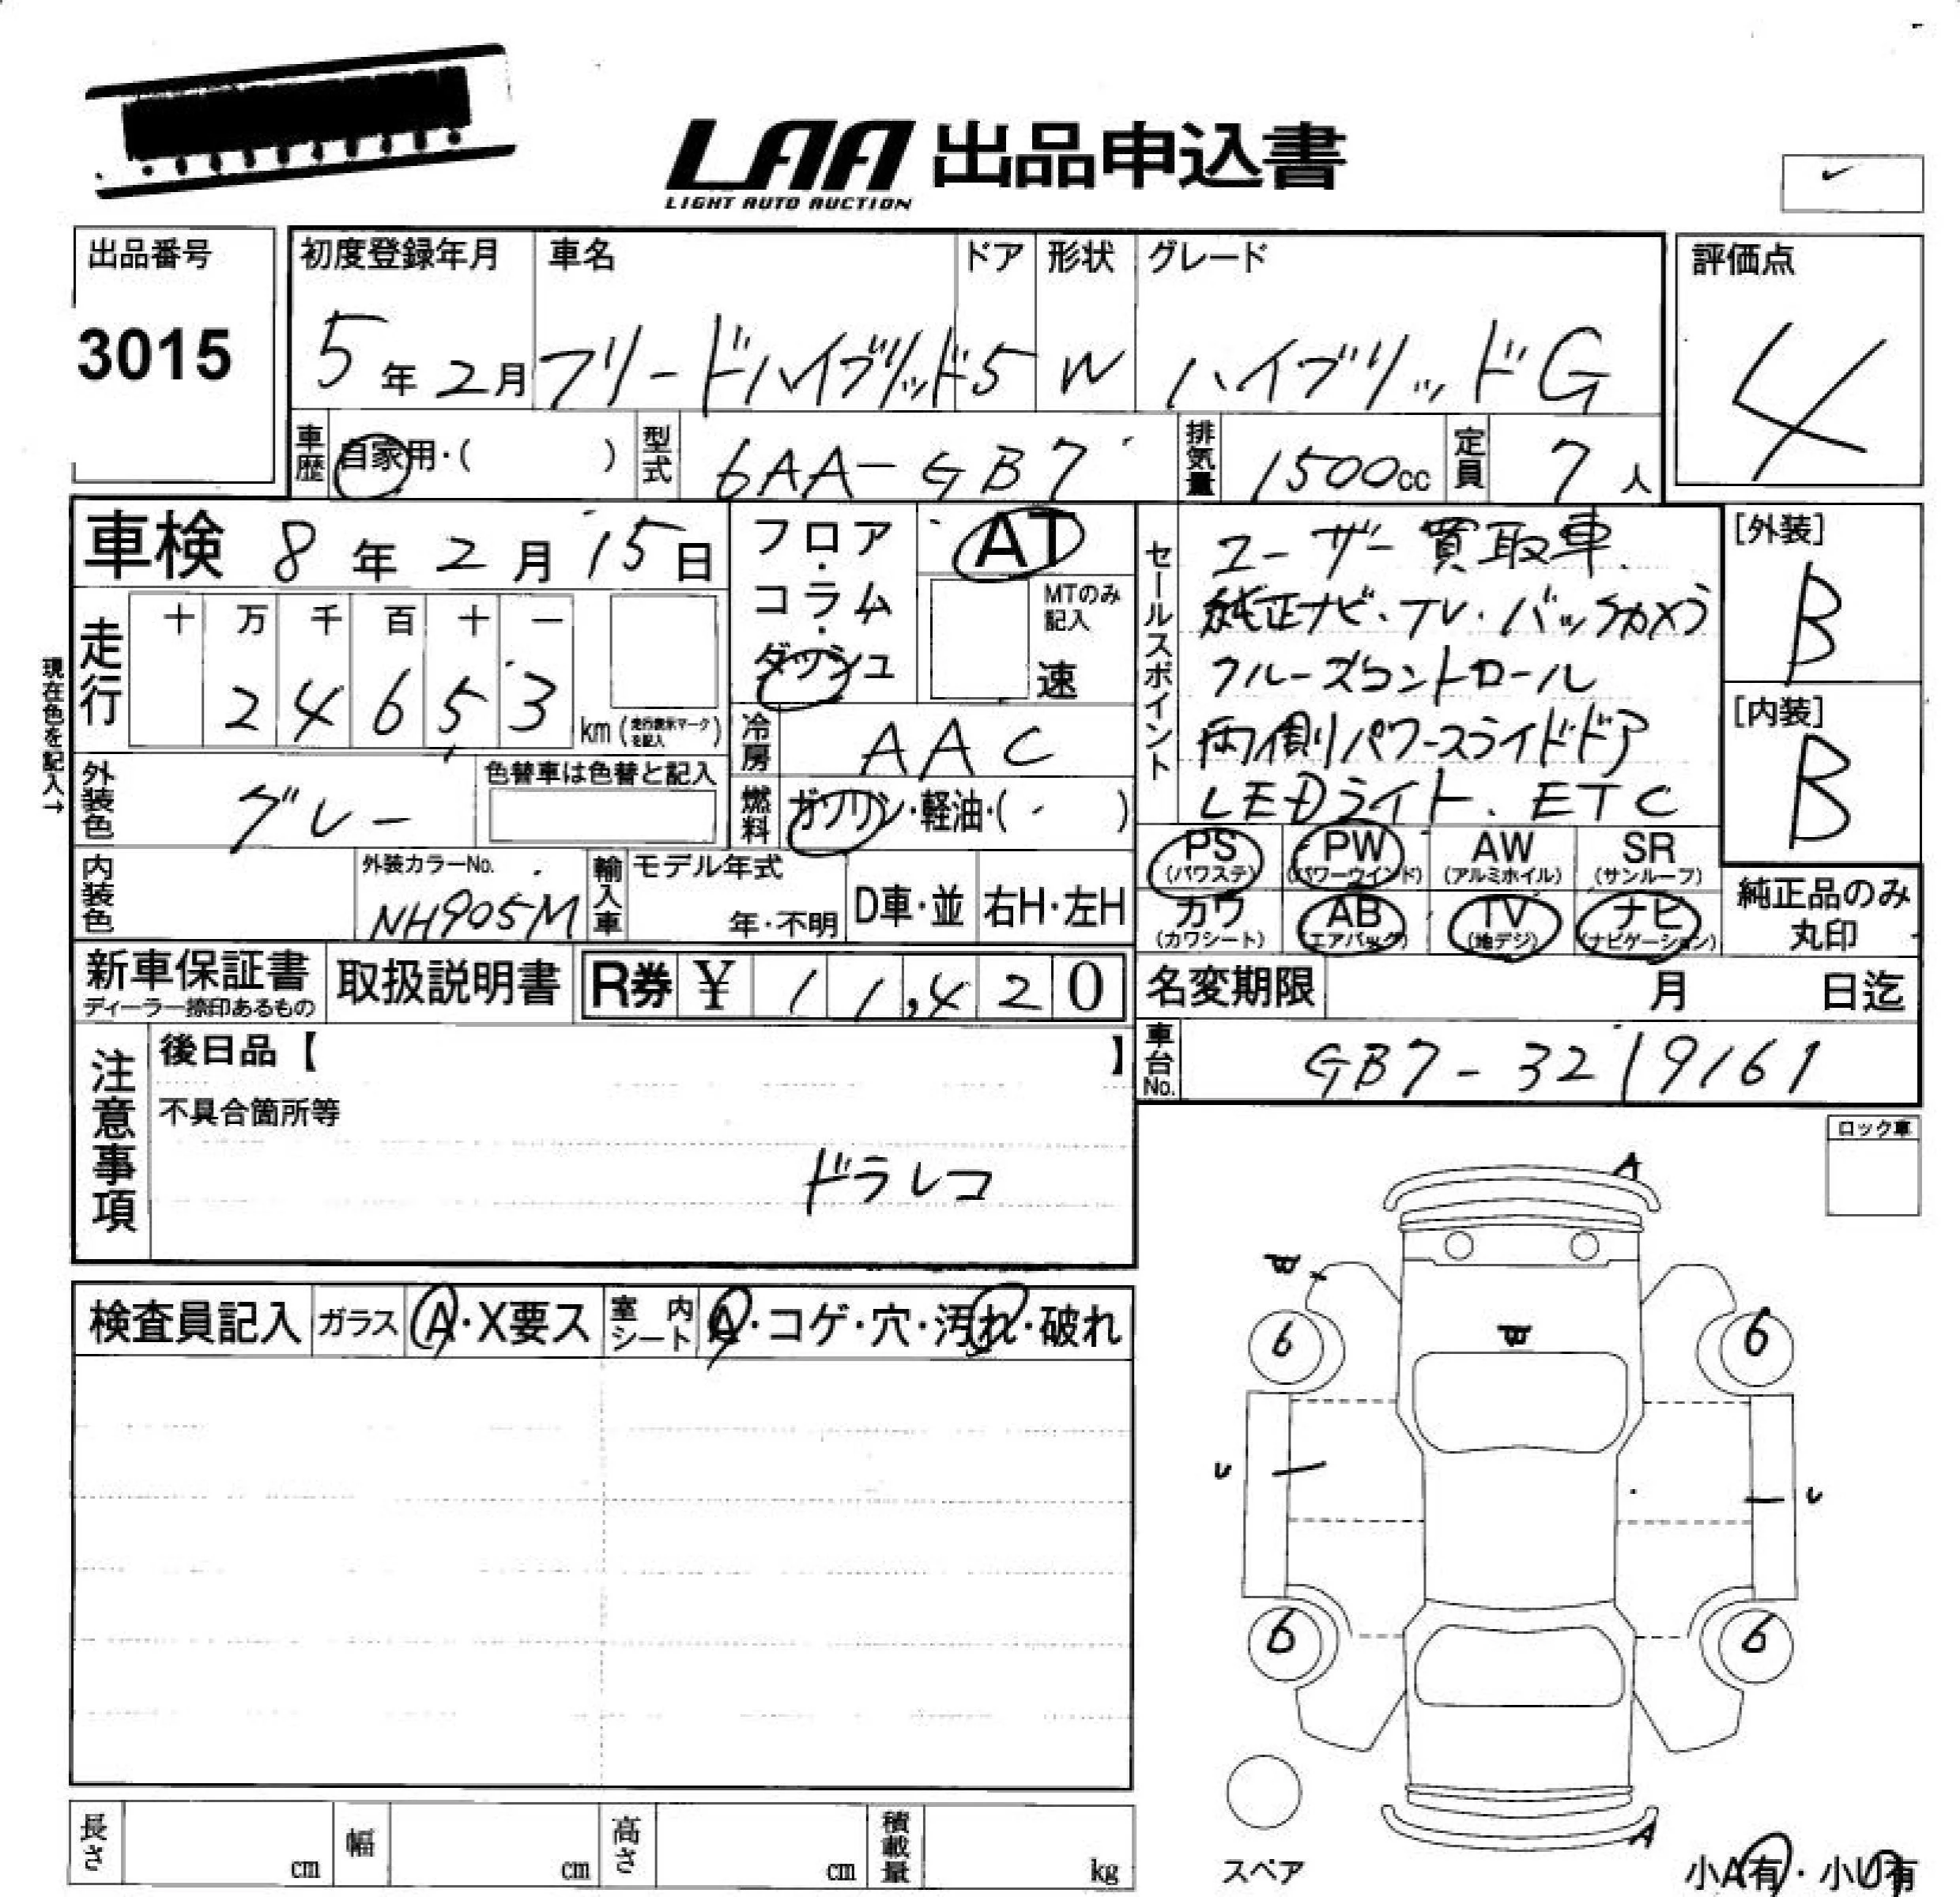 LAA 出品申込書
LIGHT AUTO AUCTION
出品番号
3015
初度登録年月 車名 ドア 形状 グレード
5年2月 フリードハイブリッド 5 W ハイブリッドG
評価点
4
車歴 自家用・( ) 型式 6AA-GB7 排気量 1500cc 定員 7人
車検 8年2月15日
フロア・コラム・ダッシュ
AT
MTのみ記入
速
走行 十 万 千 百 十 一
2 4 6 5 3 km (走行表示マークを記入)
現在色を記入→
冷房 AAC
外装色 グレー 色替車は色替と記入
燃料 ガソリン・軽油・( )
内装色 外装カラーNo. NH905M
輸入車 モデル年式 年・不明 D車・並 右H・左H
セールスポイント
ユーザー買取車
純正ナビ・TV・バックカメラ
クルーズコントロール
両側パワースライドドア
LEDライト、ETC
[外装]
B
[内装]
B
PS PW AW SR
(パワステ) (パワーウインド) (アルミホイル) (サンルーフ)
カワ AB TV ナビ
(カワシート) (エアバック) (地デジ) (ナビゲーション)
純正品のみ
丸印
新車保証書
ディーラー捺印あるもの
取扱説明書
R券 ¥ 11,420
名変期限 月 日迄
車台No. GB7-3219161
注意事項
後日品【 】
不具合箇所等
ドラレコ
ロック車
検査員記入 ガラス A・X要ス 室内シート A・コゲ・穴・汚れ・破れ
A
6 6
U U
6 6
A
スペア
小A有・小U有
長さ cm 幅 cm 高さ cm 積載量 kg